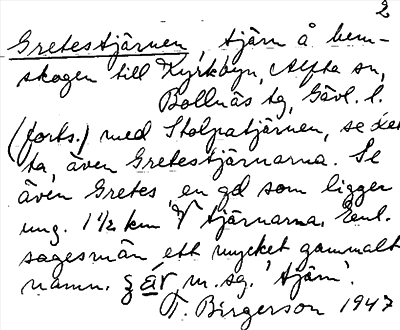 2
Gretestjärnen, tjärn å hem-
skogen till Kyrkbyn, Alfta sn,
Bollnäs tg, Gävl. l.
(forts.) med Stolpatjärnen, se
ta, även Gretestjärnarna. Se
även Gretes, en gd som ligger
ung. 1 1/2 km V tjärnarna. Enl.
sagesmän ett mycket gammalt
namn. är, m. sg. 'tjärn'.
T. Birgerson 1947